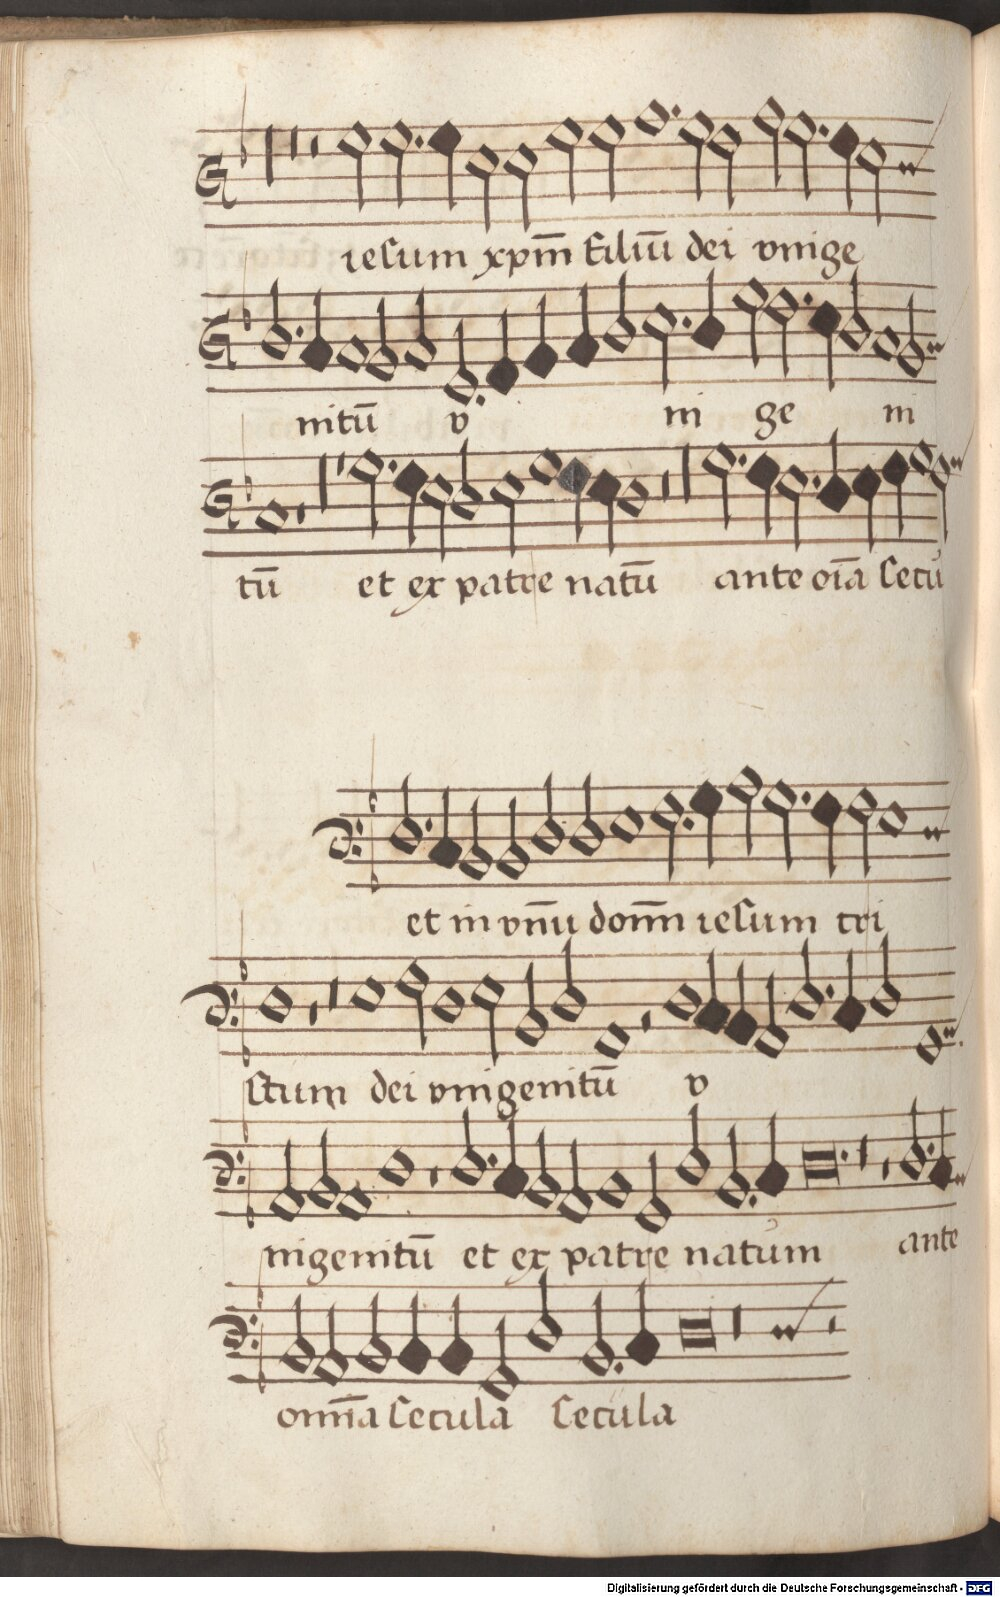 iesum xpm̄ filiū dei vnige
nitū v ni ge ni
tū et ex patre natū ante oīa secu
et in vnū dom̄ iesum cri
stum dei vnigenitū v
nigenitū et ex patre natum ante
omīa secula secula
Digitalisierung gefördert durch die Deutsche Forschungsgemeinschaft - DFG